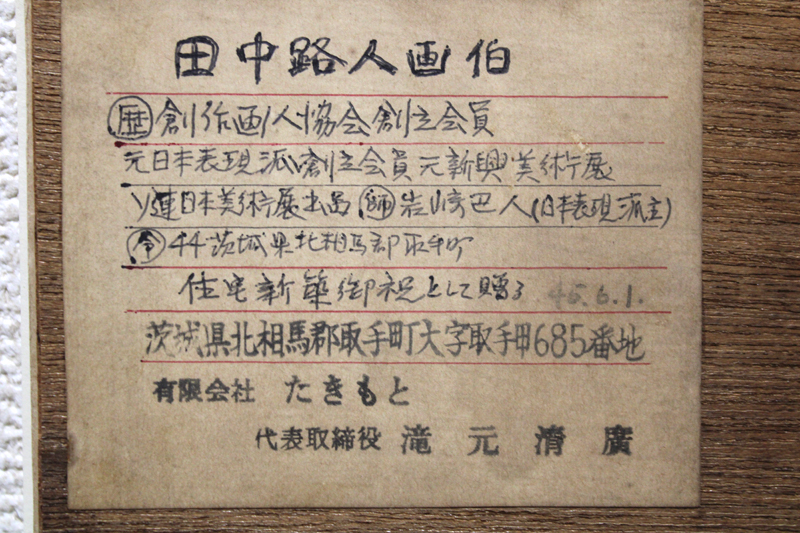 田中路人画伯
歴 創作画人協会創立会員
元日本表現派創立会員元新興美術展
ソ連日本美術展出品 師 岩崎巴人(日本表現派主)
令44茨城県北相馬郡取手町
住宅新築御祝として贈る 45.6.1.
茨城県北相馬郡取手町大字取手甲685番地
有限会社 たきもと
代表取締役 滝元清廣